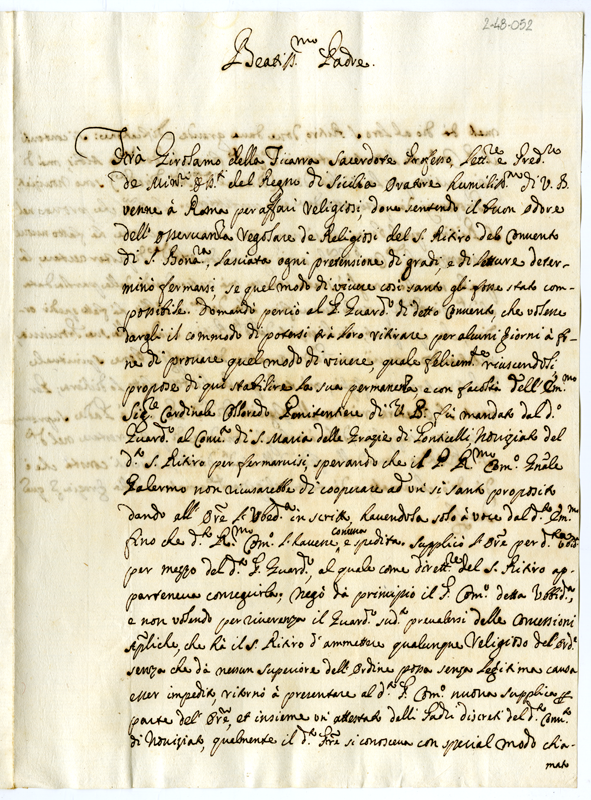 2-48-052
Beatiss.mo Padre.
Frà Girolamo della Ficarra Sacerdote Professo, Lett.re e Pred.re
de Min:ri del Regno di Sicilia Oratore humiliss.mo di V. B.
venne à Roma per affari religiosi, doue sentendo il buon odore
dell'osseruanza regolare de Religiosi del S. Ritiro del Conuento
di S. Bona.ra, lasciata ogni pretensione di gradi, e di letture deter-
minò fermarsi, se quel modo di viuere così santo gli fosse stato com-
possibile. Domandò perciò al P. Guard.o di detto Conuento, che volesse
dargli il commodo di potersi trà loro ritirare per alcuni giorni à fi-
ne di prouare quel modo di viuere, quale felicem.te riuscendoli
propose di qui stabilire la sua permanenza, e con facoltà dell'Em.mo
Sig.re Cardinale Colloredo Penitentiere di V. B. fù mandato dal d.o
Guard.o al Conu.to di S. Maria delle Grazie di Ponticelli, Nouiziato del
d.o S. Ritiro per fermaruisi, sperando che il P. R.mo Com.o Gñale
Palermo non ricusarebbe di cooperare ad un si santo proposito
dando all'Ore l'Vbbed.za in scritto, hauendola solo à voce dal d.o Em.mo
fino che d.o R.mo Com.o l'hauesse spedita. Supplicò l'Ore per d.a
per mezzo del d.o P. Guard.o, al quale come dirett.re del S. Ritiro ap-
parteneua conseguirla; negò dà principio il P. Com.o detta Vbbid.za,
e non volendo per riuerenza il Guard.o sud.o preualersi delle Concessioni
Apliche, che hà il S. Ritiro d'ammettere qualunque Religioso del Ord.e
senza che dà nessun Superiore dell'Ordine possa senza legitima causa
esser impedito ritornò à presentare al d.o P. Com.o nuoua supplica p
parte del Ore, et insieme un attestato delli Padri discreti del d.o Conu.to
di Nouiziato, qualmente il d.o Ore si conosceua con special modo chia-
mato